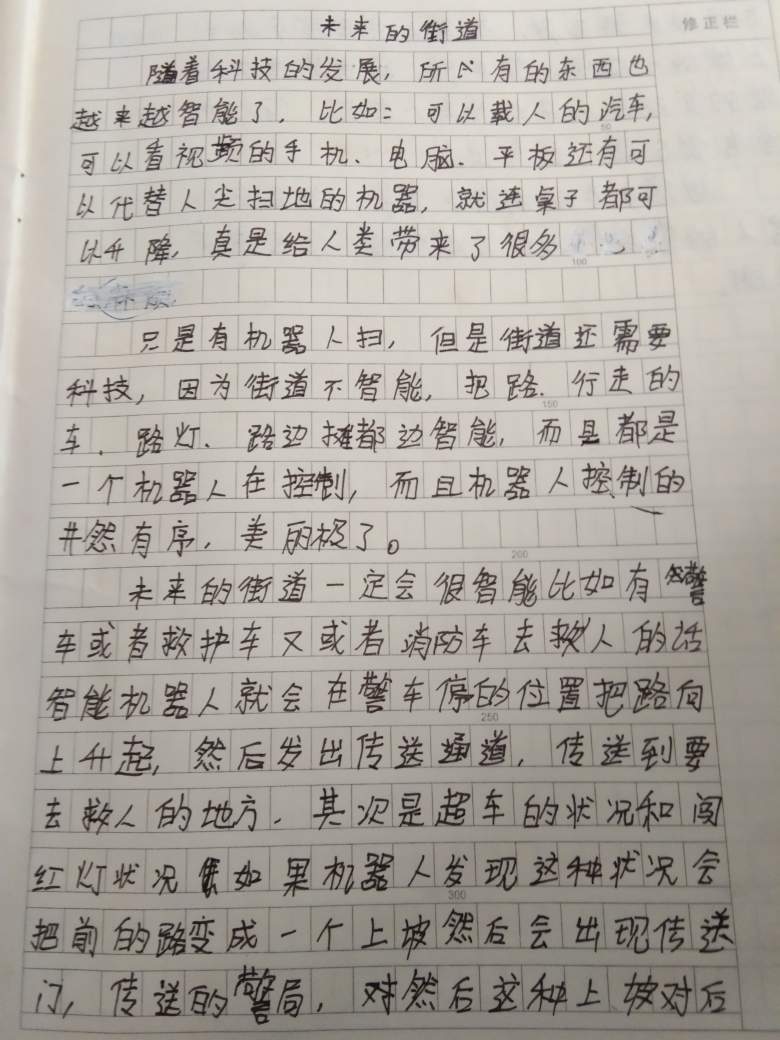 未来的街道
修正栏
随着科技的发展，所以有的东西也
越来越智能了，比如：可以载人的汽车，
50
可以看视频的手机、电脑、平板还有可
以代替人尖扫地的机器，就连桌子都可
以升降，真是给人类带来了很多
100
只是有机器人扫，但是街道还需要
科技，因为街道不智能，把路、行走的
150
车、路灯、路边摊都边智能，而且都是
一个机器人在控制，而且机器人控制的
井然有序，美丽极了。
200
未来的街道一定会很智能比如有警
车或者救护车又或者消防车去救人的话
智能机器人就会在警车停的位置把路向
250
上升起，然后发出传送通道，传送到要
去救人的地方．其次是超车的状况和闯
红灯状况如果机器人发现这种状况会
300
把前的路变成一个上坡然后会出现传送
门，传送的警局，对然后这种上坡对后